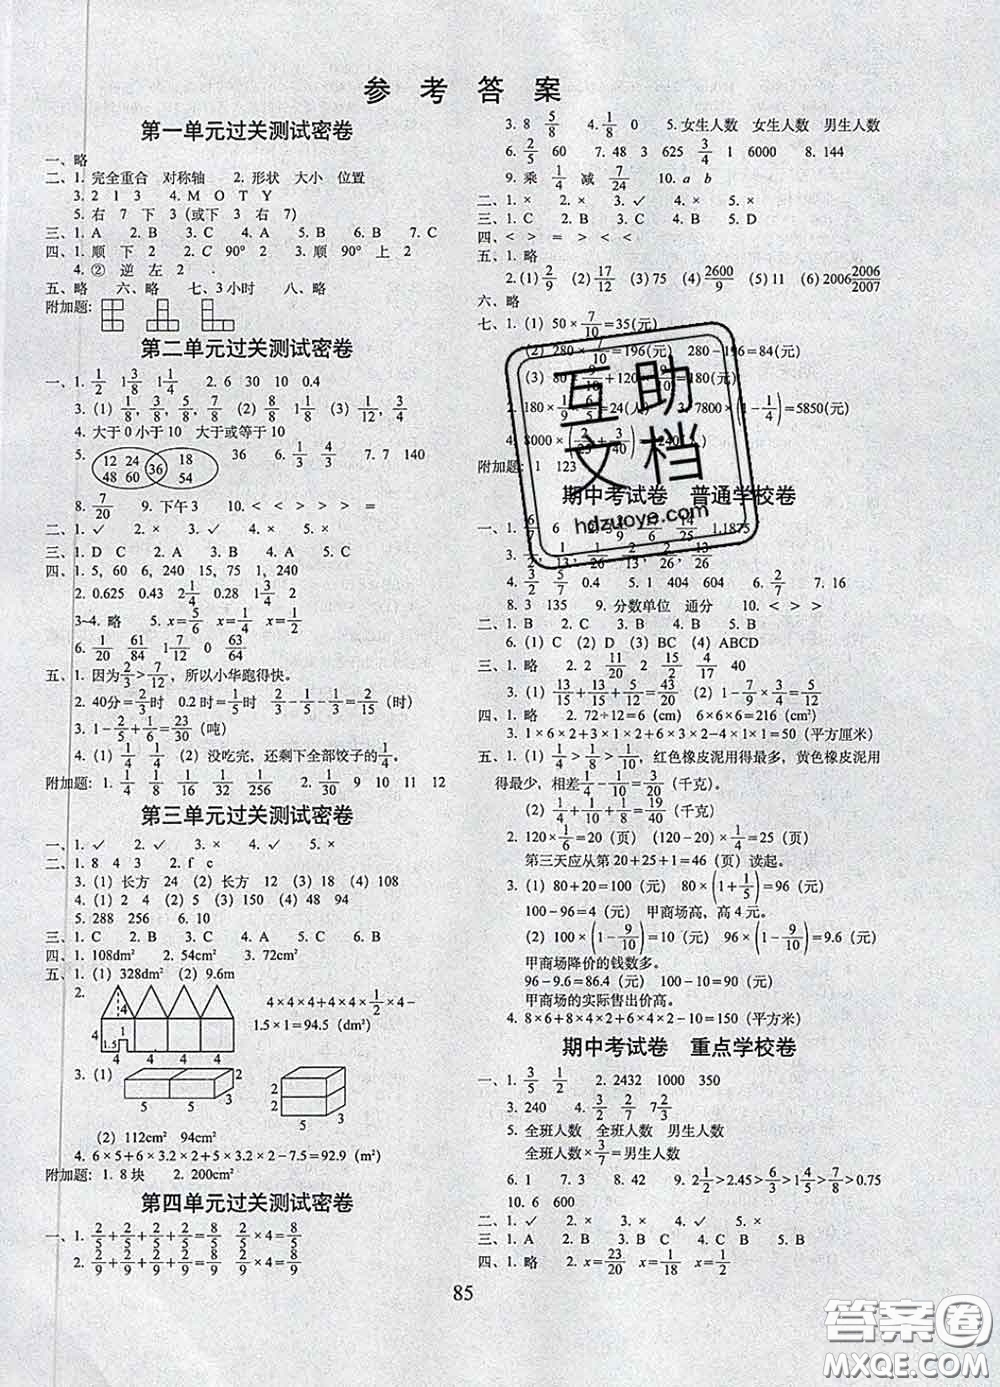 参考答案
第一单元过关测试密卷
一、略
二、1. 完全重合 对称轴 2. 形状 大小 位置
3. 2 1 3 4. M O T Y
5. 右 7 下 3（或下 3 右 7）
三、1. A 2. B 3. C 4. A 5. B 6. B 7. C
四、1. 顺 下 2 2. C 90° 2 3. 顺 90° 上 2
4. ② 逆 左 2
五、略 六、略 七、3 小时 八、略
附加题:
第二单元过关测试密卷
一、1. 1/2 1 3/8 1 1/4 2. 6 30 10 0.4
3. (1) 1/8, 3/8, 5/8, 7/8 (2) 8/8 1 1/8 (3) 1/12, 3/4
4. 大于 0 小于 10 大于或等于 10
5. 12 24 48 60 36 18 54 36 6. 1/3 4/3 7. 7 140
8. 7/20 9. 下午 3 10. < < < > > =
二、1. ✓ 2. ✓ 3. × 4. × 5. ✓
三、1. D C 2. A 3. B 4. C 5. D
四、1. 5, 60 6, 240 15, 75 1, 240
2. 0.625 0.43 2 1/4 0.28 1 3/4
3~4. 略 5. x=5/6 x=1/4 x=3/4
6. 1/20 61/84 1 7/12 0 63/64
五、1. 因为2/3>7/12，所以小华跑得快。
2. 40分=2/3时 0.2时=1/5时 2/3-1/5-1/3=2/15（时）
3. 1-2/5+1/6=23/30（吨）
4. (1) 1/4 1/4 (2) 没吃完，还剩下全部饺子的1/4。
附加题: 1. 1/4 1/8 1/16 1/32 1/256 2. 1/30 9 10 11 12
第三单元过关测试密卷
一、1. ✓ 2. ✓ 3. × 4. ✓ 5. ×
二、1. 8 4 3 2. f c
3. (1) 长方 24 (2) 长方 12 (3) 18 (4) 108
4. (1) 2 4 (2) 5 (3) 150 (4) 48 94
5. 288 256 6. 10
三、1. C 2. B 3. C 4. A 5. C 6. B
四、1. 108dm² 2. 54cm² 3. 72cm²
五、1. (1) 328dm² (2) 9.6m
2. 4 4 1.5 1 4 4 4 4×4×4+4×4×1/2×4-
1.5×1=94.5（dm²）
3. (1) 2 3 5 5 2 2 5 3
(2) 112cm² 94cm²
4. 6×5+6×3×2+5×3×2-7.5=92.9（m²）
附加题: 1. 8 块 2. 200cm²
第四单元过关测试密卷
一、1. 2/5+2/5+2/5+2/5=8/5 2/5×4=8/5
2. 2/9+2/9+2/9+2/9=8/9 2/9×4=8/9
3. 8 5/8 4. 1/8 0 5. 女生人数 女生人数 男生人数
6. 2/5 60 7. 48 3 625 3/4 1 6000 8. 144
9. 乘 1/4 减 7/24 10. a b
二、1. × 2. × 3. ✓ 4. × 5. ×
三、1. C 2. B 3. A 4. B 5. D
四、< > = > < <
五、1. 略
2. (1) 2/9 (2) 17/12 (3) 75 (4) 2600/9 (5) 10 (6) 2006 2006/2007
六、略
七、1. (1) 50×7/10=35(元)
(2) 280×7/10=196(元) 280-196=84(元)
(3) 80×9/10+120×
2. 180×1/9×6/5=24(人) 3. 7800×(1-1/4)=5850(元)
4. 8000×(2/25+3/40)
附加题: 1 123
期中考试卷 普通学校卷
一、1. 14/25 1.1875
4. 3/2 5/7 0.4 5. 1 404 604 6. 2/7 7. 16
8. 3 135 9. 分数单位 通分 10. < > >
二、1. B 2. C 3. A 4. B 5. B
6. (1) C (2) D (3) BC (4) ABCD
三、1. 略 2. 2 11/20 2 15/2 4/17 40
3. (1) 13/15+13/15+5/12=43/20 (2) 1-7/9×3/4=5/12
四、1. 略 2. 72÷12=6（cm） 6×6×6=216（cm³）
3. 1×6×2+3×1×2+6×3×2-4×1×1=50（平方厘米）
五、1. (1) 1/4>1/8>1/10，红色橡皮泥用得最多，黄色橡皮泥用
得最少，相差1/4-1/10=3/20（千克）。
(2) 1/4+1/10+1/8=19/40（千克）
2. 120×1/6=20（页） (120-20)×1/4=25（页）
第三天应从第 20+25+1=46（页）读起。
3. (1) 80+20=100（元） 80×(1+1/5)=96（元）
100-96=4（元） 甲商场高，高 4 元。
(2) 100×(1-9/10)=10（元） 96×(1-9/10)=9.6（元）
甲商场降价的钱数多。
96-9.6=86.4（元） 100-10=90（元）
甲商场的实际售出价高。
4. 8×6+8×4×2+6×4×2-10=150（平方米）
期中考试卷 重点学校卷
一、1. 3/5 1/2 2. 2432 1000 350
3. 240 4. 3/2 2/7 7 2/3
5. 全班人数 全班人数 男生人数
全班人数×3/7=男生人数
6. 1 7. 3 8. 42 9. 2 1/2>2.45>6/3>1 4/5>7/8>0.75
10. 6 600
二、1. ✓ 2. × 3. × 4. × 5. ✓
三、1. A 2. B 3. B C 4. C 5. B
四、1. 略 2. x=23/20 x=1/18 x=1/2
85
互助文档
hdzuoye.com
答案圈
MXQE.COM